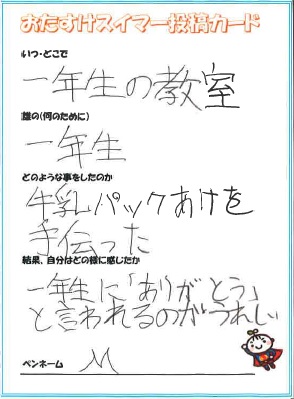 おたすけスイマー投稿カード
いつ・どこで
一年生の教室
誰の(何のために)
一年生
どのような事をしたのか
牛乳パックあけを
手伝った
結果、自分はどの様に感じたか
一年生に「ありがとう」
と言われるのがうれしい
ペンネーム M